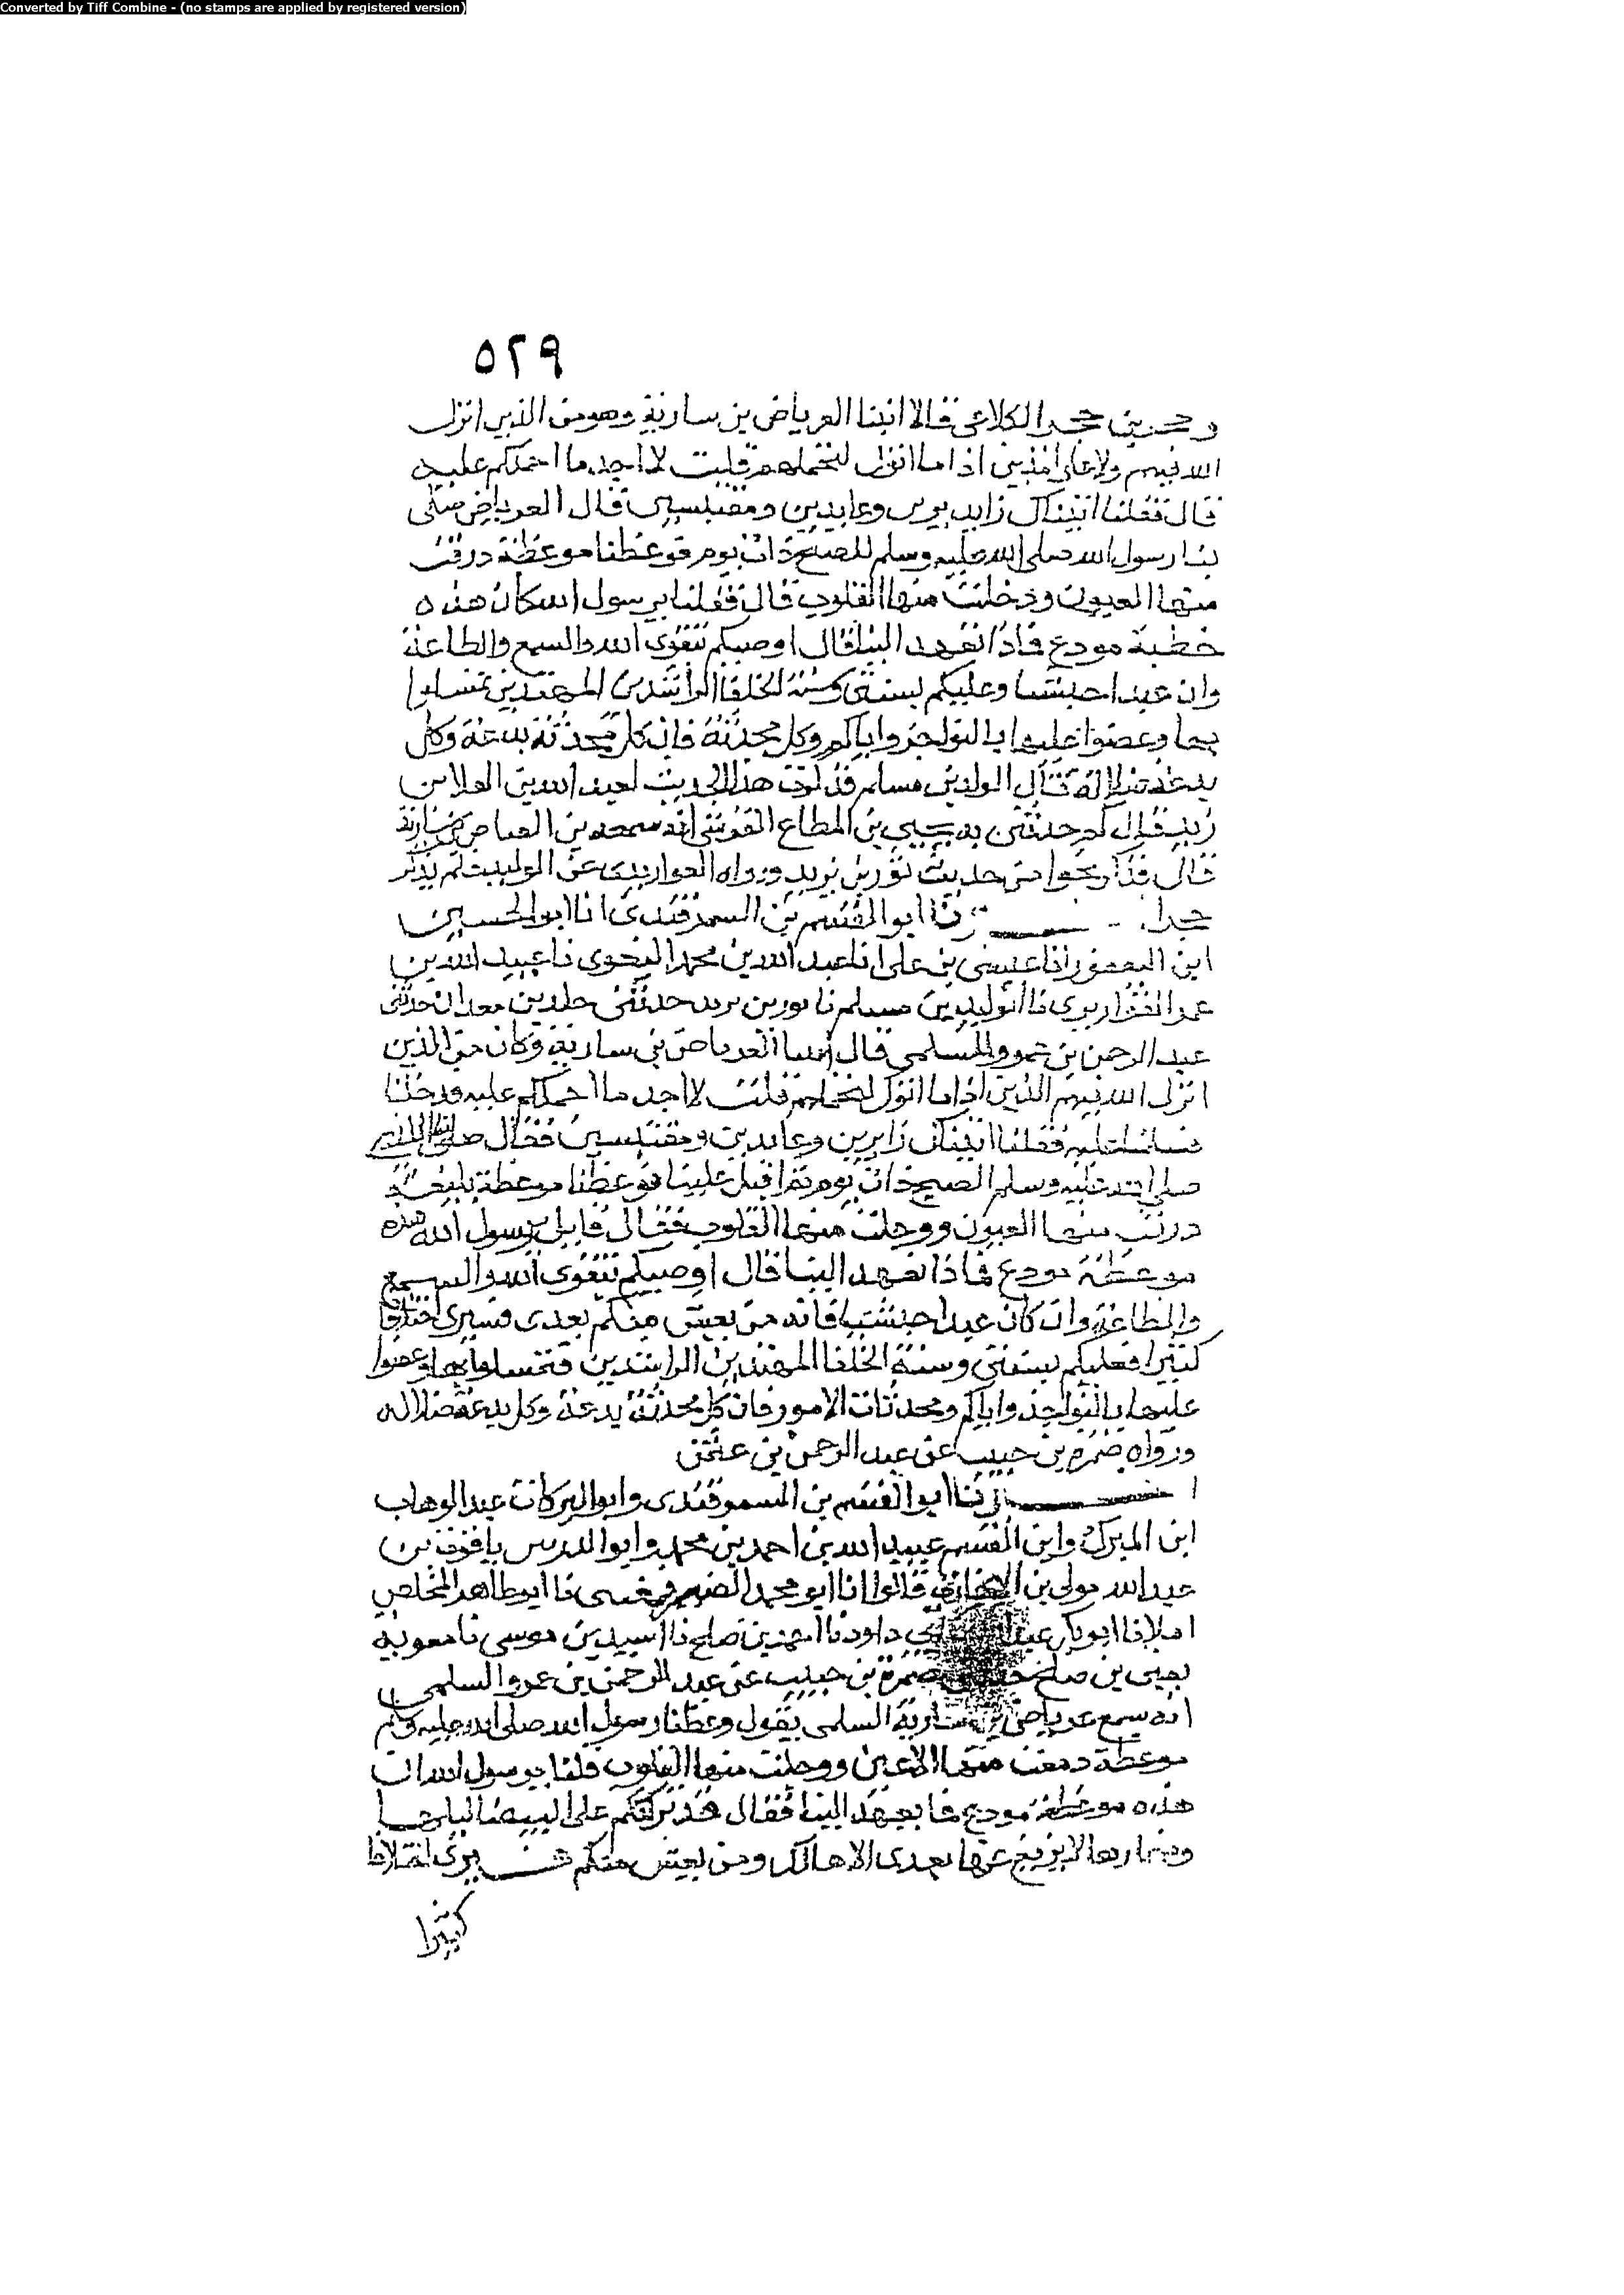 Converted by Tiff Combine - (no stamps are applied by registered version)
٥٢٩
وحجر بن حجر الكلاعي قالا اتينا العرياض بن سارية وهو من الذين انزل
الله فيهم ولا على الذين اذا ما اتوك لتحملهم قلت لا اجد ما احملكم عليه
قال فقلنا اتيناك زايرين وعايدين ومقتبسين قال العرباض صلى
بنا رسول الله صلى الله عليه وسلم الصبح ذات يوم فوعظنا موعظة درفت
منها العيون ووجلت منها القلوب قال فقلنا يرسول الله كان هذه
خطبة مودع فماذا تعهد الينا قال اوصيكم بتقوى الله والسمع والطاعة
وان عبدا حبشيا وعليكم بسنتي وسنة الخلفا الراشدين المهتدين تمسكوا
بها وعضوا عليها بالنواجذ واياكم وكل محدثة فان كل محدثة بدعة وكل
بدعة ضلالة قال الوليد بن مسلم فذكرت هذا الحديث لعبد الله بن العلا بن
زبر فقال حدثني به يحيى بن المطاع القرشي انه سمعه بن العرباض بن سارية
قال فذكر نحوا من حديث ثور بن يزيد ورواه القواريري عن الوليد لم يذكر
حجرا
نا ابو القسم بن السمرقندي انا ابو الحسين
ابن النقور انا عيسى بن علي انا عبد الله بن محمد البغوي نا عبيد الله بن
عمر القواريري نا الوليد بن مسلم نا ثور بن يزيد حدثني خلد بن معدان حدثني
عبد الرحمن بن عمرو السلمي قال اتينا العرباض بن سارية وكان من الذين
انزل الله فيهم الذين اذا ما اتوك لتحملهم قلت لا اجد ما احملكم عليه فدخلنا
فسلمنا عليه فقلنا اتيناك زايرين وعايدين ومقتبسين فقال صلى لنا النبي
صلى الله عليه وسلم الصبح ذات يوم ثم اقبل علينا فوعظنا موعظة بليغة
درفت منها العيون ووجلت منها القلوب فقال قايل يرسول الله هذه
موعظة مودع فماذا تعهد الينا قال اوصيكم بتقوى الله والسمع
والطاعة وان كان عبدا حبشيا فانه من يعيش منكم بعدي فسيرى اختلافا
كثيرا فعليكم بسنتي وسنة الخلفا المهتدين الراشدين فتمسكوا بها وعضوا
عليها بالنواجذ واياكم ومحدثات الامور فان كل محدثة بدعة وكل بدعة ضلالة
ورواه ضمرة بن حبيب عن عبد الرحمن بن
ا رنا ابو القسم بن السمرقندي وابو البركات عبد الوهاب
ابن المبرك وابن القسم عبيد الله بن احمد بن محمد وابو الدر ياقوت بن
عبد الله مولى بن قالوا انا ابو محمد الصريفيني نا ابو طاهر المخلص
املا نا ابو بكر عبد الله بن ابي داود نا احمد بن صلح نا اسد بن موسى نا معوية
يعني بن صلح ضمرة بن حبيب عن عبد الرحمن بن عمرو السلمي
انه سمع عرباض بن سارية السلمي يقول وعظنا رسول الله صلى الله عليه وسلم
موعظة دمعت منها الاعين ووجلت منها القلوب قلنا يرسول الله ان
هذه موعظة مودع فما تعهد الينا فقال قد تركتكم على البيضا ليلها
ونهارها لا يزيغ عنها بعدي الا هالك ومن يعيش منكم فسيرى اختلافا
كثيرا